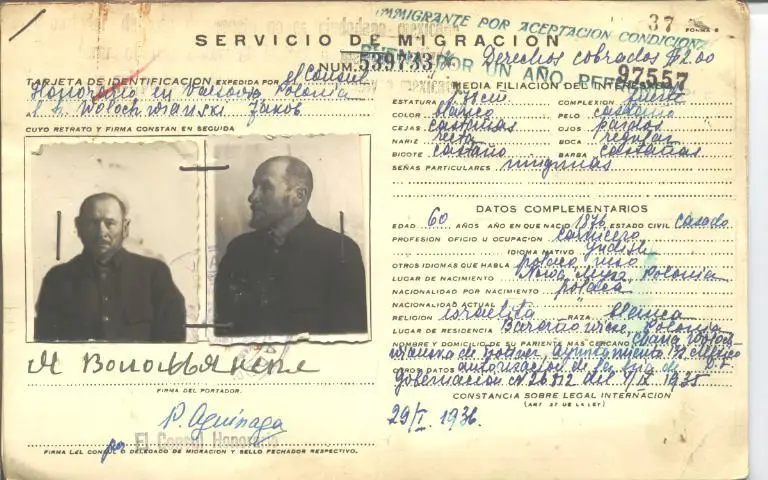 INMIGRANTE POR ACEPTACION CONDICIONAL
37
FORMA 5
SERVICIO DE MIGRACION
POR UN AÑO
Derechos cobrados $2.00
NUM. 539733
97557
TARJETA DE IDENTIFICACION EXPEDIDA POR el Consul
Honorario en Varsovia Polonia
A Wolochwianski Jakob
CUYO RETRATO Y FIRMA CONSTAN EN SEGUIDA
MEDIA FILIACION DEL INTERESADO
ESTATURA COMPLEXION fuerte
COLOR blanco PELO castaño
CEJAS castañas OJOS pardos
NARIZ recta BOCA regular
BIGOTE castaño BARBA castañas
SEÑAS PARTICULARES ningunas
DATOS COMPLEMENTARIOS
EDAD 60 AÑOS AÑO EN QUE NACIO 1876 ESTADO CIVIL casado
PROFESION OFICIO U OCUPACION carnicero
IDIOMA NATIVO yidish
OTROS IDIOMAS QUE HABLA polaco, ruso
LUGAR DE NACIMIENTO Nowa Mysz, Polonia
NACIONALIDAD POR NACIMIENTO polaca
NACIONALIDAD ACTUAL "
RELIGION israelita RAZA blanca
LUGAR DE RESIDENCIA Polonia
NOMBRE Y DOMICILIO DE SU PARIENTE MAS CERCANO
de Ayuntamiento
OTROS DATOS autorización de la Sria de
D.F.
Gobernación N 26812 del 1935
CONSTANCIA SOBRE LEGAL INTERNACION
(ART. 57 DE LA LEY)
29/I 1936.
FIRMA DEL PORTADOR.
P. Aguinaga
por El Consul Honorario
FIRMA DEL CONSUL O DELEGADO DE MIGRACION Y SELLO FECHADOR RESPECTIVO.